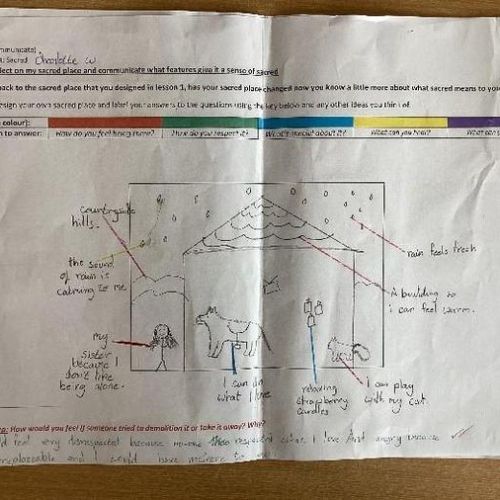 mmunicate)
Sacred Charlotte W
lect on my sacred place and communicate what features give it a sense of sacred
back to the sacred place that you designed in lesson 1, has your sacred place changed now you know a little more about what sacred means to you
sign your own sacred place and label your answers to the questions using the key below and any other ideas you think of.
colour):
n to answer: How do you feel being there? How do you respect it? What's special about it? What can you hear? What can you
countryside
hills.
the sound
of rain is
calming to me
rain feels fresh
A building so
i can feel warm.
my
sister
because I
don't like
being alone.
I can do
what I love
relaxing
strawberry
candles
I can play
with my cat
How would you feel if someone tried to demolition it or take it away? Why?
feel very disrespected because no-one respected what I love And angry because
irreplaceable and I would have